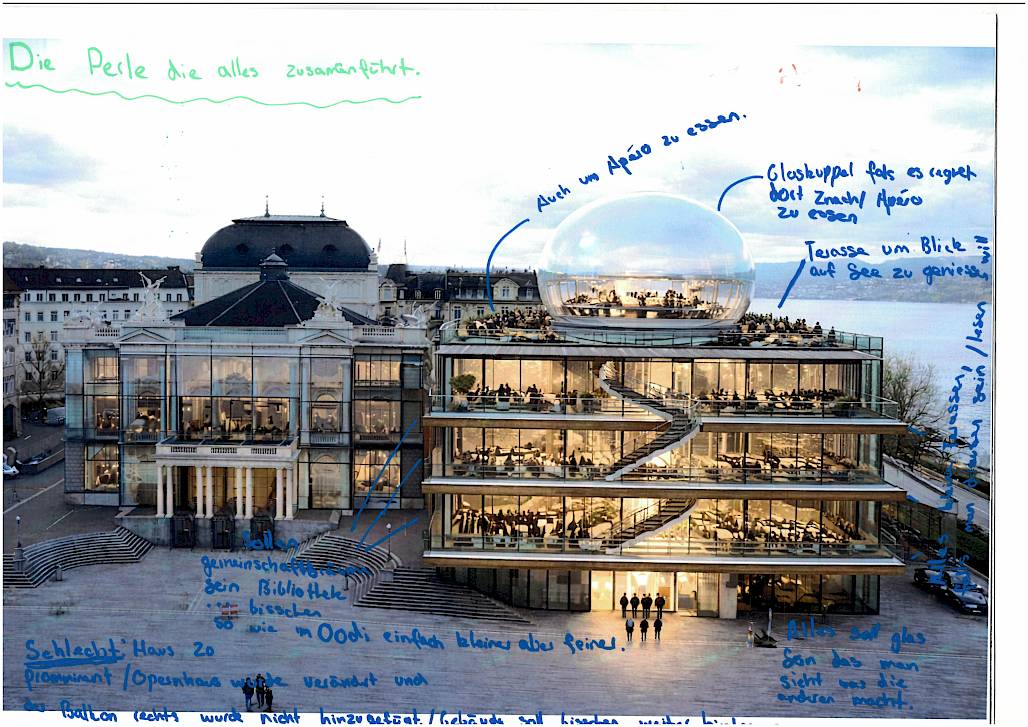 Die Perle die alles zusammenführt.
Auch um Apéro zu essen.
Glaskuppel fals es regnet
dort Znacht/ Apéro
zu essen
Terasse um Blick
auf See zu geniessen
man draussen sein / lesen will
Sollen
gemeinschaftsräume
sein Bibliothek
bisschen
so wie im Oodi einfach kleiner aber feiner.
Alles soll glas
sein das man
sieht was die
anderen macht.
Schlecht: Haus zu
prominant / Opernhaus wurde verändert und
der Balkon rechts wurde nicht hinzugefügt / Gebäude soll bisschen weiter hinten